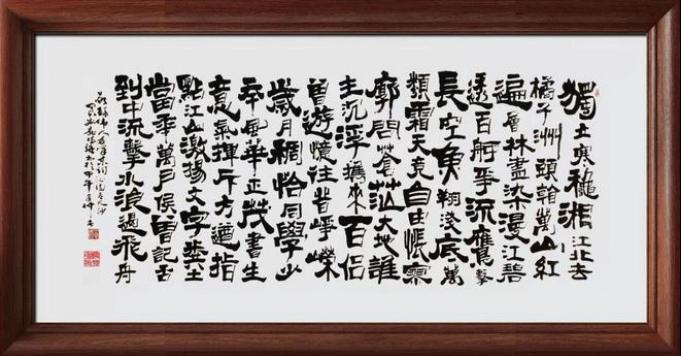 獨立寒穐湘江北去
橘子洲頭看萬山紅
遍層林盡染漫江碧
透百舸爭流鷹擊
長空魚翔淺底萬
類霜天竞自由悵寥
廓問蒼茫大地誰
主沉浮攜來百侶
曾遊憶往昔崢嶸
歲月稠恰同學少
年風華正茂書生
意氣揮斥方遒指
點江山激揚文字糞土
當年萬戶侯曾記否
到中流擊水浪遏飛舟